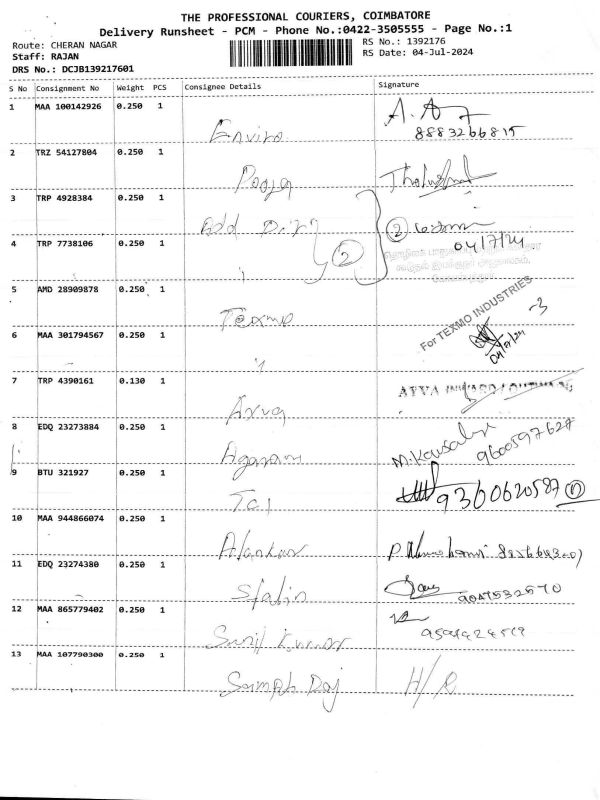 THE PROFESSIONAL COURIERS, COIMBATORE
Delivery Runsheet - PCM - Phone No.:0422-3505555 - Page No.:1
Route: CHERAN NAGAR
RS No.: 1392176
Staff: RAJAN
RS Date: 04-Jul-2024
DRS No.: DCJB139217601
S No Consignment No Weight PCS Consignee Details Signature
1 MAA 100142926 0.250 1
Enviro
8883266815
2 TRZ 54127804 0.250 1
Pooja
3 TRP 4928384 0.250 1
Add
2
04/7/24
4 TRP 7738106 0.250 1
"
2
5 AMD 28909878 0.250 1
Texmo
For TEXMO INDUSTRIES
-3
04/7/24
6 MAA 301794567 0.250 1
"
7 TRP 4390161 0.130 1
8 EDQ 23273884 0.250 1
Agaram
M. Kousalya
9600597627
9 BTU 321927 0.250 1
TCI
9360620587
10 MAA 944866074 0.250 1
Alankar
11 EDQ 23274380 0.250 1
Stalin
9047532570
12 MAA 865779402 0.250 1
Sunil Kumar
13 MAA 107790300 0.250 1
Raj
H/R